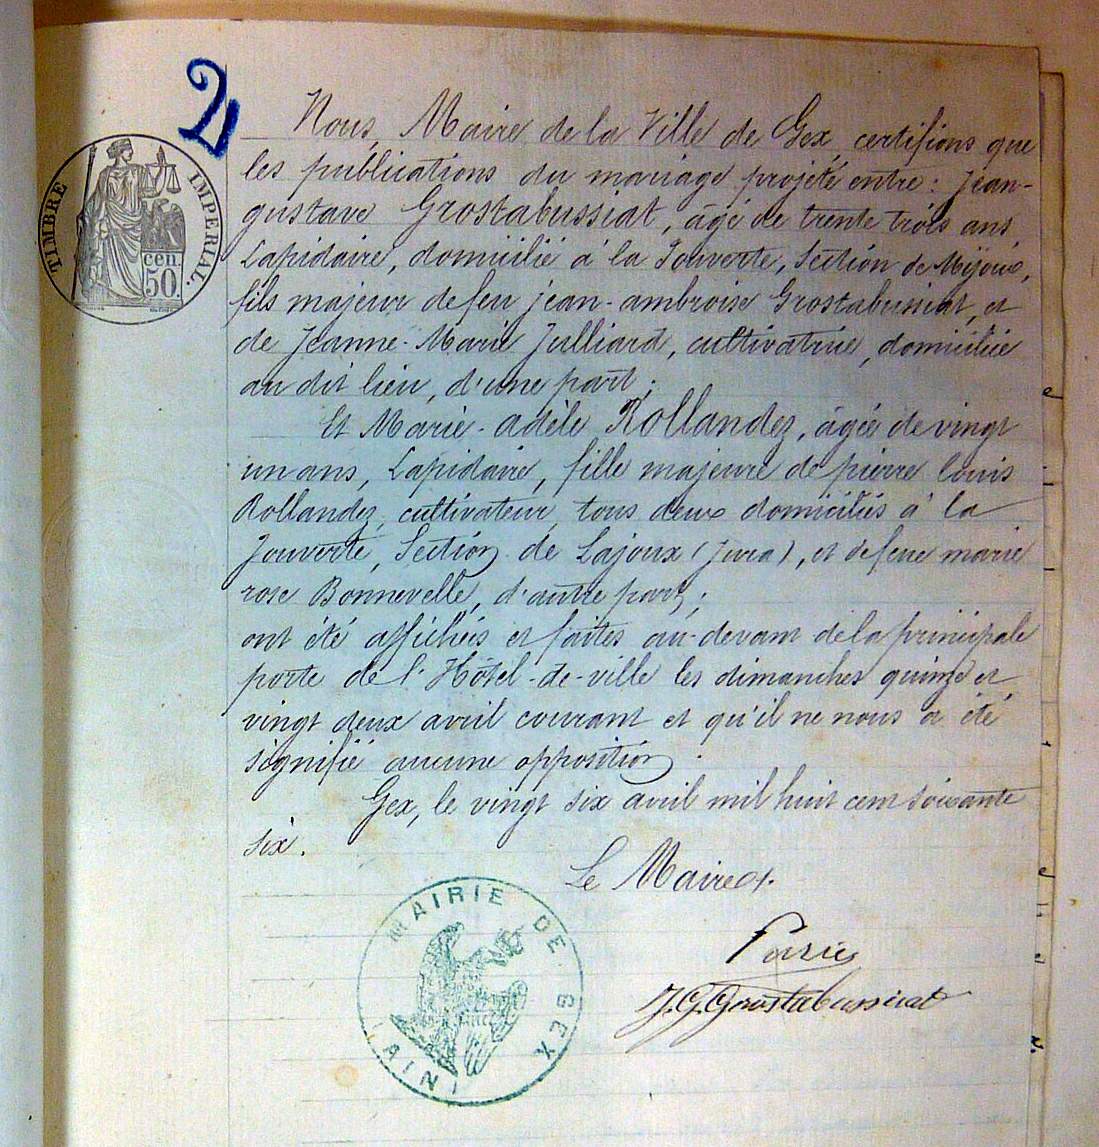 2
TIMBRE IMPERIAL.
cen.
50.
Nous, Maire de la Ville de Gex certifions que
les publications du mariage projeté entre : Jean-
gustave Grostabussiat, âgé de trente trois ans,
Lapidaire, domicilié à la Jouverte, Section de Mijoux,
fils majeur de feu jean-ambroise Grostabussiat, et
de Jeanne-Marie Julliard, cultivatrice, domiciliée
au dit lieu, d'une part ;
Et Marie-adèle Rollandez, âgée de vingt
un ans, Lapidaire, fille majeure de pierre louis
Rollandez, cultivateur, tous deux domiciliés à la
Jouverte, Section de Lajoux (Jura), et de feue marie
rose Bonnevelle, d'autre part ;
ont été affichées et faites au-devant de la principale
porte de l'Hôtel-de-ville les dimanches quinze et
vingt deux avril courant et qu'il ne nous a été
signifié aucune opposition.
Gex, le vingt six avril mil huit cent soixante
six.
Le Maire
MAIRIE DE GEX
(AIN)
J.G. Grostabussiat